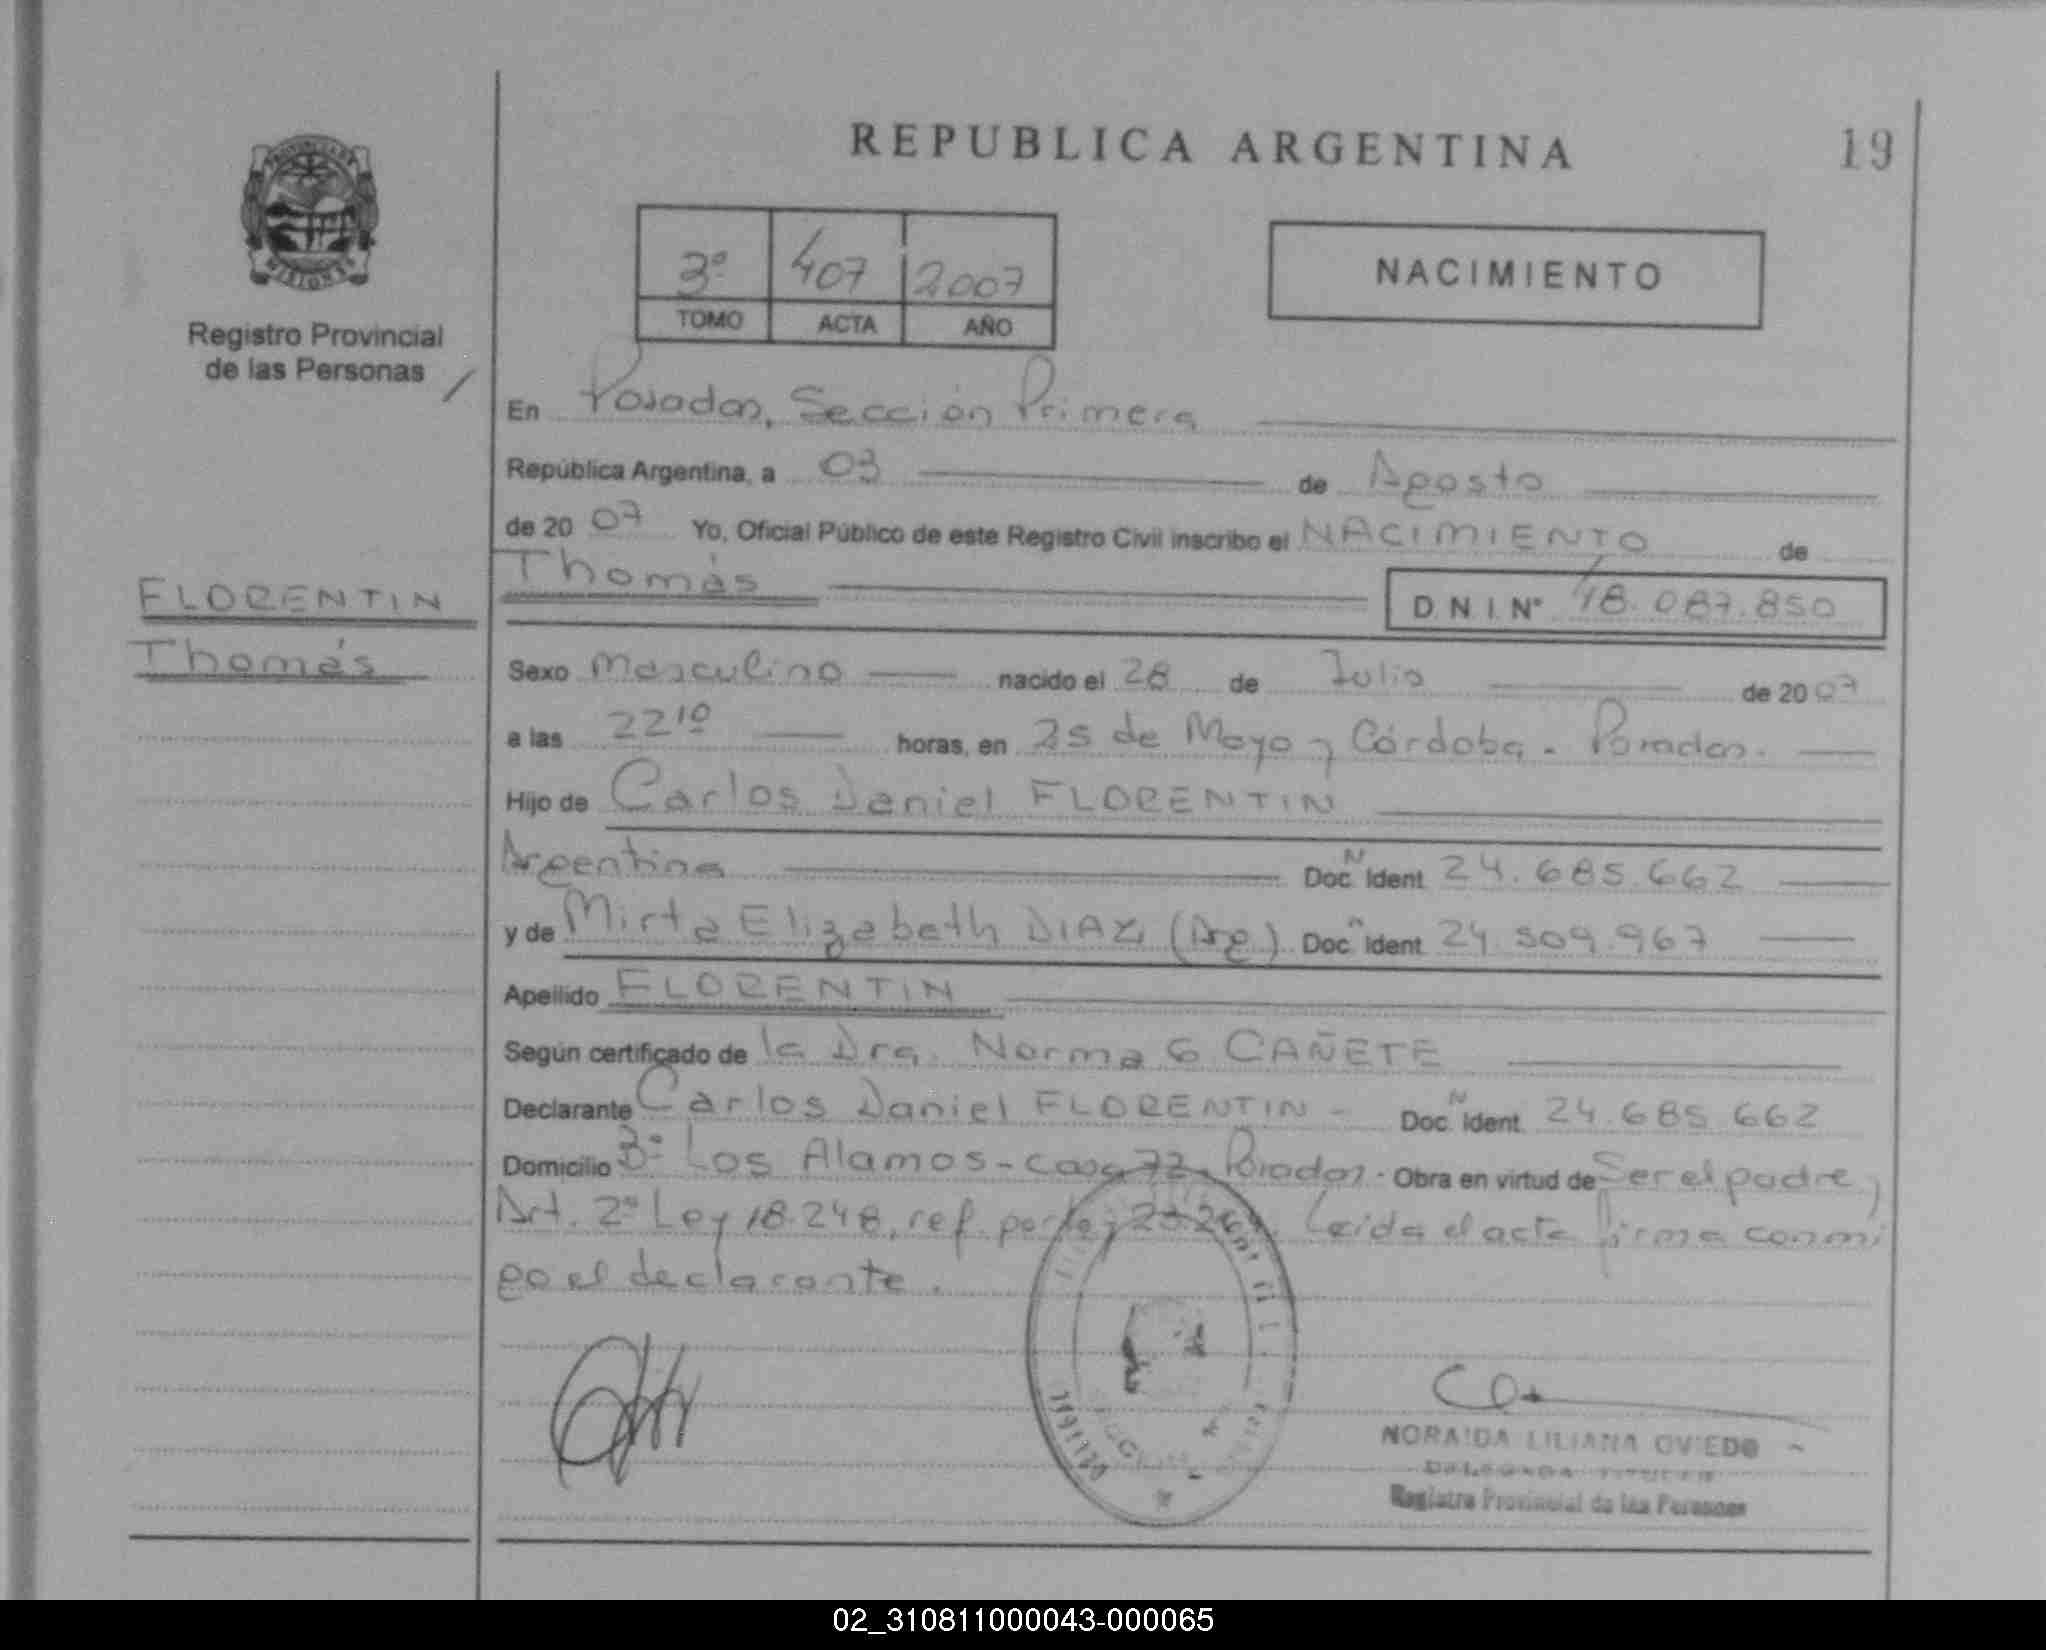 REPUBLICA ARGENTINA
19
PROVINCIA DE
MISIONES
Registro Provincial
de las Personas
3º 407 2007
TOMO ACTA AÑO
NACIMIENTO
En Posadas, Sección Primera
República Argentina, a 03 de Agosto
de 20 07 Yo, Oficial Público de este Registro Civil inscribo el NACIMIENTO de
Thomás
D.N.I. Nº 48.087.850
FLORENTIN
Thomás
Sexo Masculino nacido el 28 de Julio de 20 07
a las 22 10 horas, en 25 de Mayo y Córdoba - Posadas.
Hijo de Carlos Daniel FLORENTIN
Argentina Doc. N Ident. 24.685.662
y de Mirta Elizabeth DIAZ (Arg) Doc. N Ident. 24.509.967
Apellido FLORENTIN
Según certificado de la Dra. Norma G CAÑETE
Declarante Carlos Daniel FLORENTIN - Doc. N Ident. 24.685.662
Domicilio Bº Los Alamos - casa 72 - Posadas - Obra en virtud de Ser el padre,
Art. 2º Ley 18.248, ref. por ley 23.264. Leida el acta firma conmi
go el declarante.
NORAIDA LILIANA OVIEDO
DELEGADA TITULAR
Registro Provincial de las Personas
02_310811000043-000065